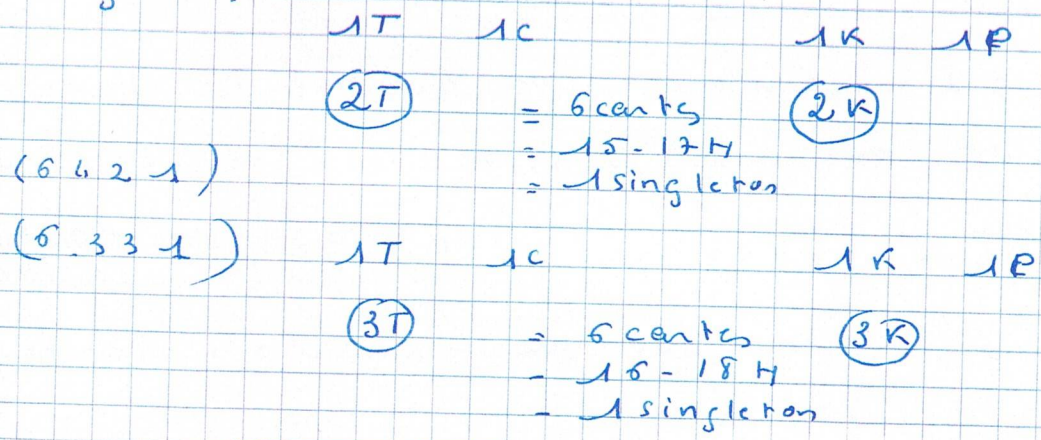 1T 1C 1K 1P
2T = 6 cartes 2K
= 15-17H
(6 4 2 1) = 1 singleton
(6.3 3 1) 1T 1C 1K 1P
3T - 6 cartes 3K
- 16-18H
- 1 singleton